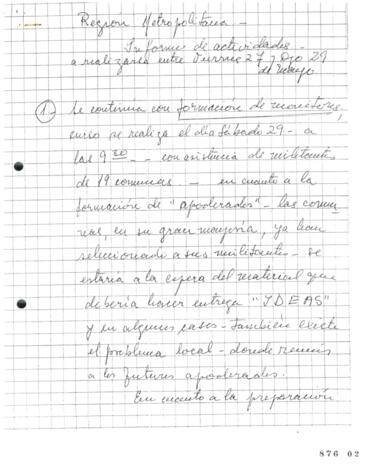 Region Metropolitana -
Informe de actividades -
a realizarse entre Viernes 27 y Dgo 29
de mayo
1.- Se continua con formación de monitores,
curso se realiza el dia Sábado 29 - a
las 9 30 - con asistencia de militantes
de 19 comunas - en cuanto a la
formación de "apoderados" - las comu
nas, en su gran mayoría, ya han
seleccionado a sus militantes - se
estaría a la espera del material que
debería hacer entrega "IDEAS"
y en algunos casos - también existe
el problema local - donde reunir
a los futuros apoderados.
En cuanto a la preparación
876 02